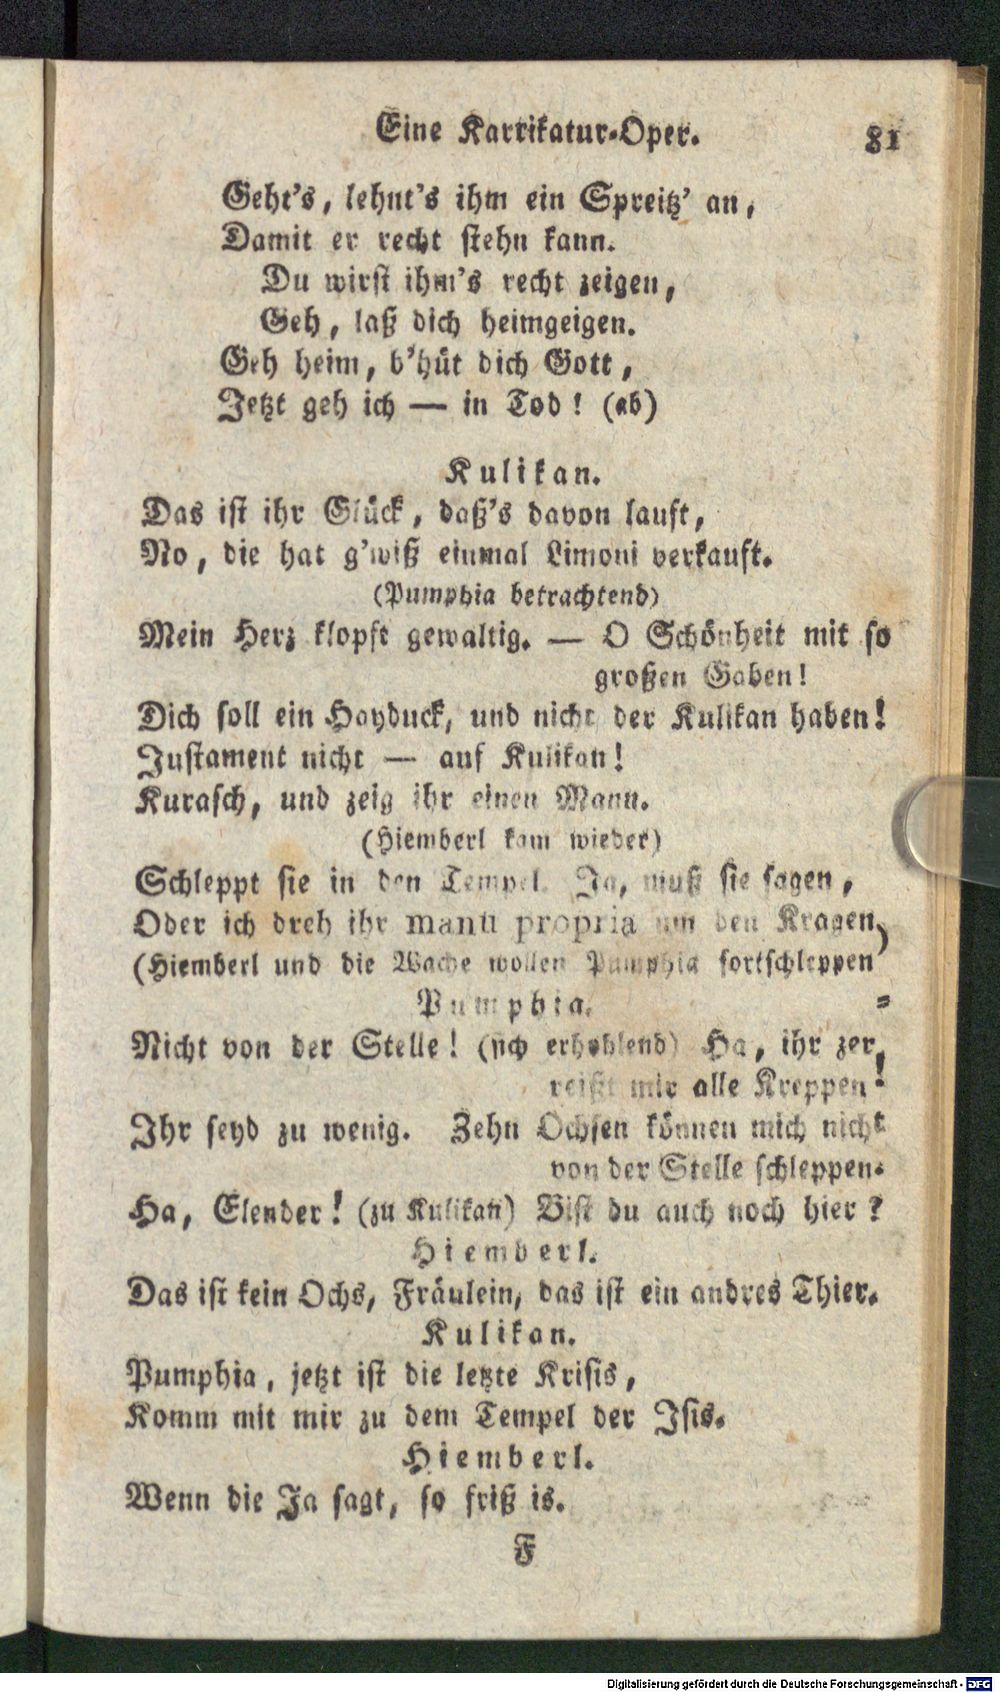 Eine Karrikatur-Oper. 81
Geht's, lehnt's ihm ein Spreitz' an,
Damit er recht stehn kann.
Du wirst ihm's recht zeigen,
Geh, laß dich heimgeigen.
Geh heim, b'hüt dich Gott,
Jetzt geh ich — in Tod! (ab)
Kulikan.
Das ist ihr Glück, daß's davon lauft,
No, die hat g'wiß einmal Limoni verkauft.
(Pumphia betrachtend)
Mein Herz klopft gewaltig. — O Schönheit mit so
großen Gaben!
Dich soll ein Hayduck, und nicht der Kulikan haben!
Justament nicht — auf Kulikan!
Kurasch, und zeig ihr einen Mann.
(Hiemberl kam wieder)
Schleppt sie in den Tempel. Ja, muß sie sagen,
Oder ich dreh ihr manu propria um den Kragen,
(Hiemberl und die Wache wollen Pumphia fortschleppen)
Pumphia.
Nicht von der Stelle! (sich erhohlend) Ha, ihr zer=
reißt mir alle Kreppen!
Ihr seyd zu wenig. Zehn Ochsen können mich nicht
von der Stelle schleppen.
Ha, Elender! (zu Kulikan) Bist du auch noch hier?
Hiemberl.
Das ist kein Ochs, Fräulein, das ist ein andres Thier.
Kulikan.
Pumphia, jetzt ist die letzte Krisis,
Komm mit mir zu dem Tempel der Isis.
Hiemberl.
Wenn die Ja sagt, so friß is.
F
Digitalisierung gefördert durch die Deutsche Forschungsgemeinschaft - DFG